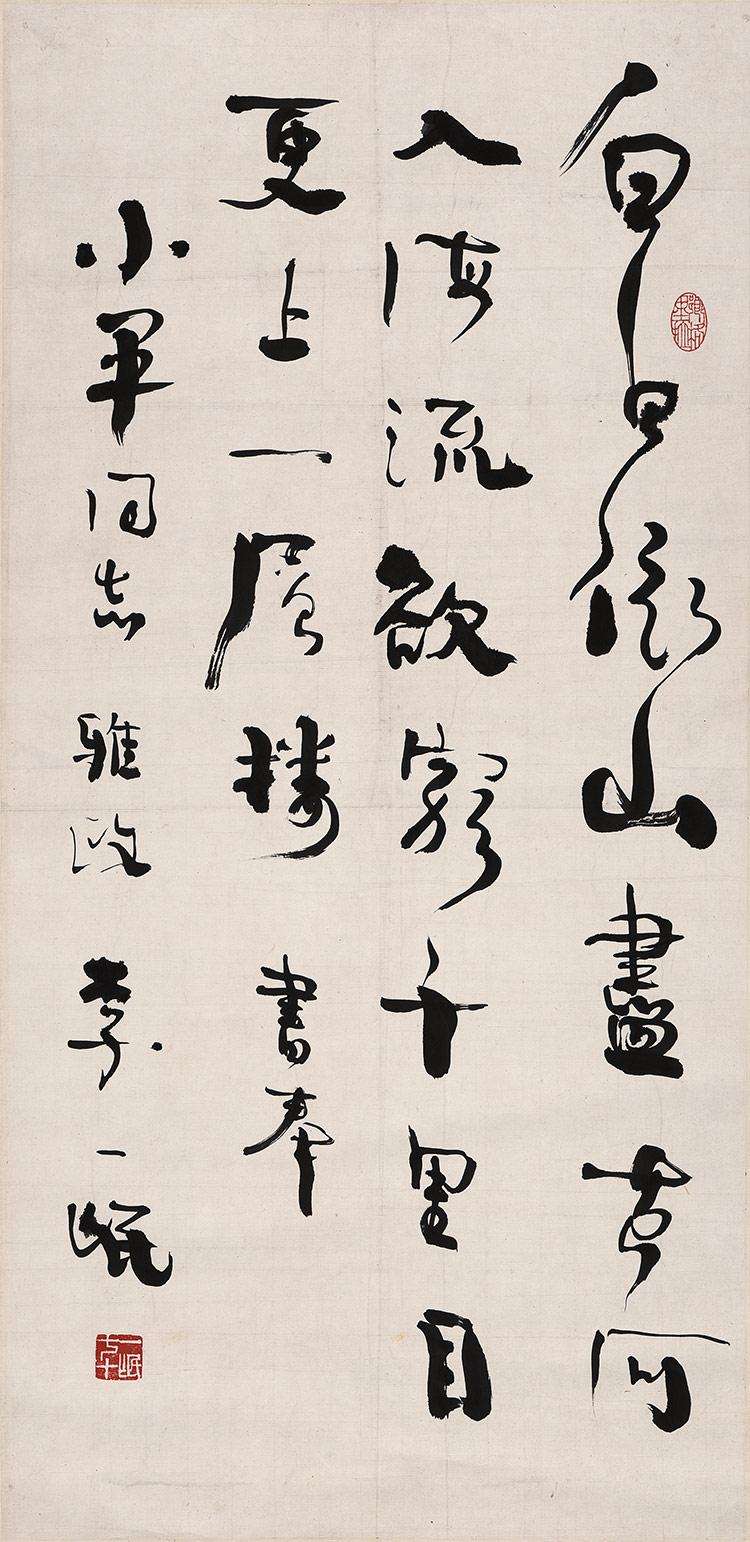 白日依山盡黄河
入海流欲窮千里目
更上一層樓 書奉
小军同志 雅政 李一氓
一氓七十